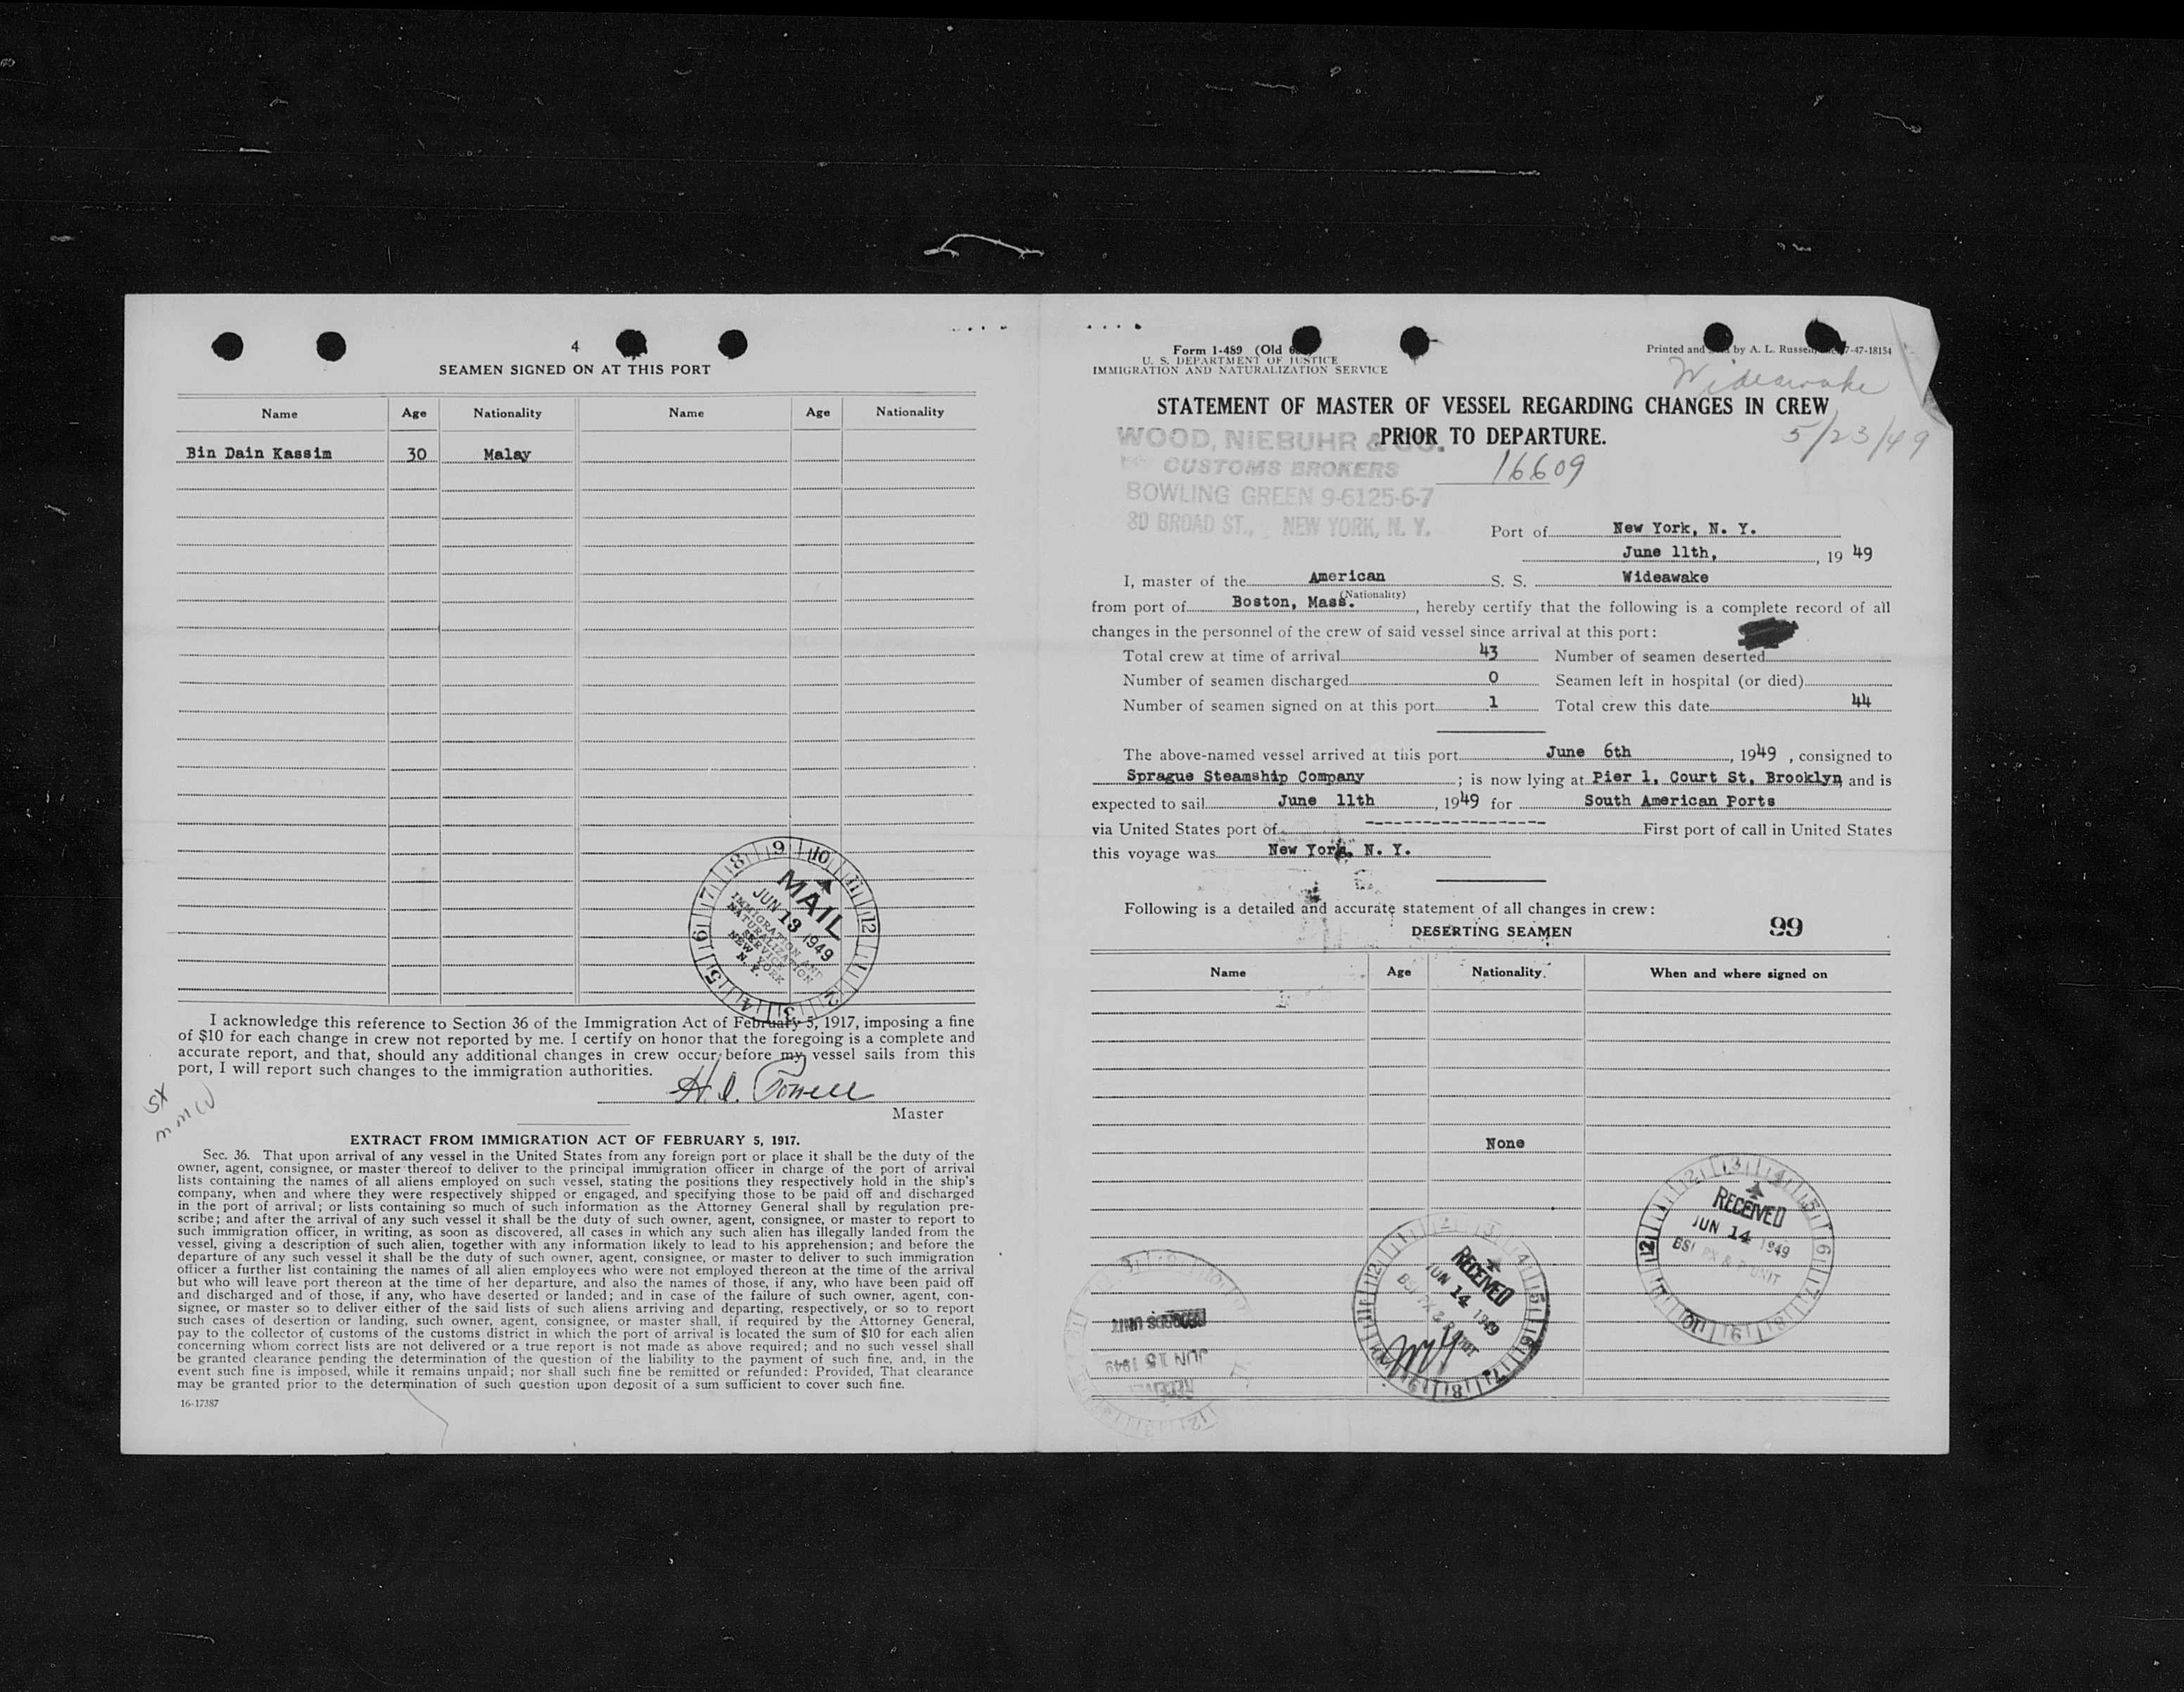 4
SEAMEN SIGNED ON AT THIS PORT
Name Age Nationality Name Age Nationality
Bin Dain Kassim 30 Malay
MAIL
JUN 13 1949
IMMIGRATION AND
NATURALIZATION
SERVICE
NEW YORK
N. Y.
I acknowledge this reference to Section 36 of the Immigration Act of February 5, 1917, imposing a fine
of $10 for each change in crew not reported by me. I certify on honor that the foregoing is a complete and
accurate report, and that, should any additional changes in crew occur before my vessel sails from this
port, I will report such changes to the immigration authorities.
Master
EXTRACT FROM IMMIGRATION ACT OF FEBRUARY 5, 1917.
Sec. 36. That upon arrival of any vessel in the United States from any foreign port or place it shall be the duty of the
owner, agent, consignee, or master thereof to deliver to the principal immigration officer in charge of the port of arrival
lists containing the names of all aliens employed on such vessel, stating the positions they respectively hold in the ship's
company, when and where they were respectively shipped or engaged, and specifying those to be paid off and discharged
in the port of arrival; or lists containing so much of such information as the Attorney General shall by regulation pre-
scribe; and after the arrival of any such vessel it shall be the duty of such owner, agent, consignee, or master to report to
such immigration officer, in writing, as soon as discovered, all cases in which any such alien has illegally landed from the
vessel, giving a description of such alien, together with any information likely to lead to his apprehension; and before the
departure of any such vessel it shall be the duty of such owner, agent, consignee, or master to deliver to such immigration
officer a further list containing the names of all alien employees who were not employed thereon at the time of the arrival
but who will leave port thereon at the time of her departure, and also the names of those, if any, who have been paid off
and discharged and of those, if any, who have deserted or landed; and in case of the failure of such owner, agent, con-
signee, or master so to deliver either of the said lists of such aliens arriving and departing, respectively, or so to report
such cases of desertion or landing, such owner, agent, consignee, or master shall, if required by the Attorney General,
pay to the collector of customs of the customs district in which the port of arrival is located the sum of $10 for each alien
concerning whom correct lists are not delivered or a true report is not made as above required; and no such vessel shall
be granted clearance pending the determination of the question of the liability to the payment of such fine, and, in the
event such fine is imposed, while it remains unpaid; nor shall such fine be remitted or refunded: Provided, That clearance
may be granted prior to the determination of such question upon deposit of a sum sufficient to cover such fine.
16-17387
Form I-489 (Old
U. S. DEPARTMENT OF JUSTICE
IMMIGRATION AND NATURALIZATION SERVICE
Printed and by A. L. Russell 7-47-18154
Wideawake
5/23/49
STATEMENT OF MASTER OF VESSEL REGARDING CHANGES IN CREW
PRIOR TO DEPARTURE.
WOOD, NIEBUHR & CO.
CUSTOMS BROKERS
BOWLING GREEN 9-6125-6-7
80 BROAD ST., NEW YORK, N. Y.
16609
Port of New York, N. Y.
June 11th, , 19 49
I, master of the American S. S. Wideawake
(Nationality)
from port of Boston, Mass. , hereby certify that the following is a complete record of all
changes in the personnel of the crew of said vessel since arrival at this port:
Total crew at time of arrival 43 Number of seamen deserted
Number of seamen discharged 0 Seamen left in hospital (or died)
Number of seamen signed on at this port 1 Total crew this date 44
The above-named vessel arrived at this port June 6th , 1949 , consigned to
Sprague Steamship Company ; is now lying at Pier 1, Court St, Brooklyn and is
expected to sail June 11th , 1949 for South American Ports
via United States port of ---------------- First port of call in United States
this voyage was New York, N. Y.
Following is a detailed and accurate statement of all changes in crew:
DESERTING SEAMEN 99
Name Age Nationality When and where signed on
None
RECEIVED
JUN 14 1949
RECEIVED
JUN 14 1949
RECORDS UNIT
JUN 15 1949
RECEIVED